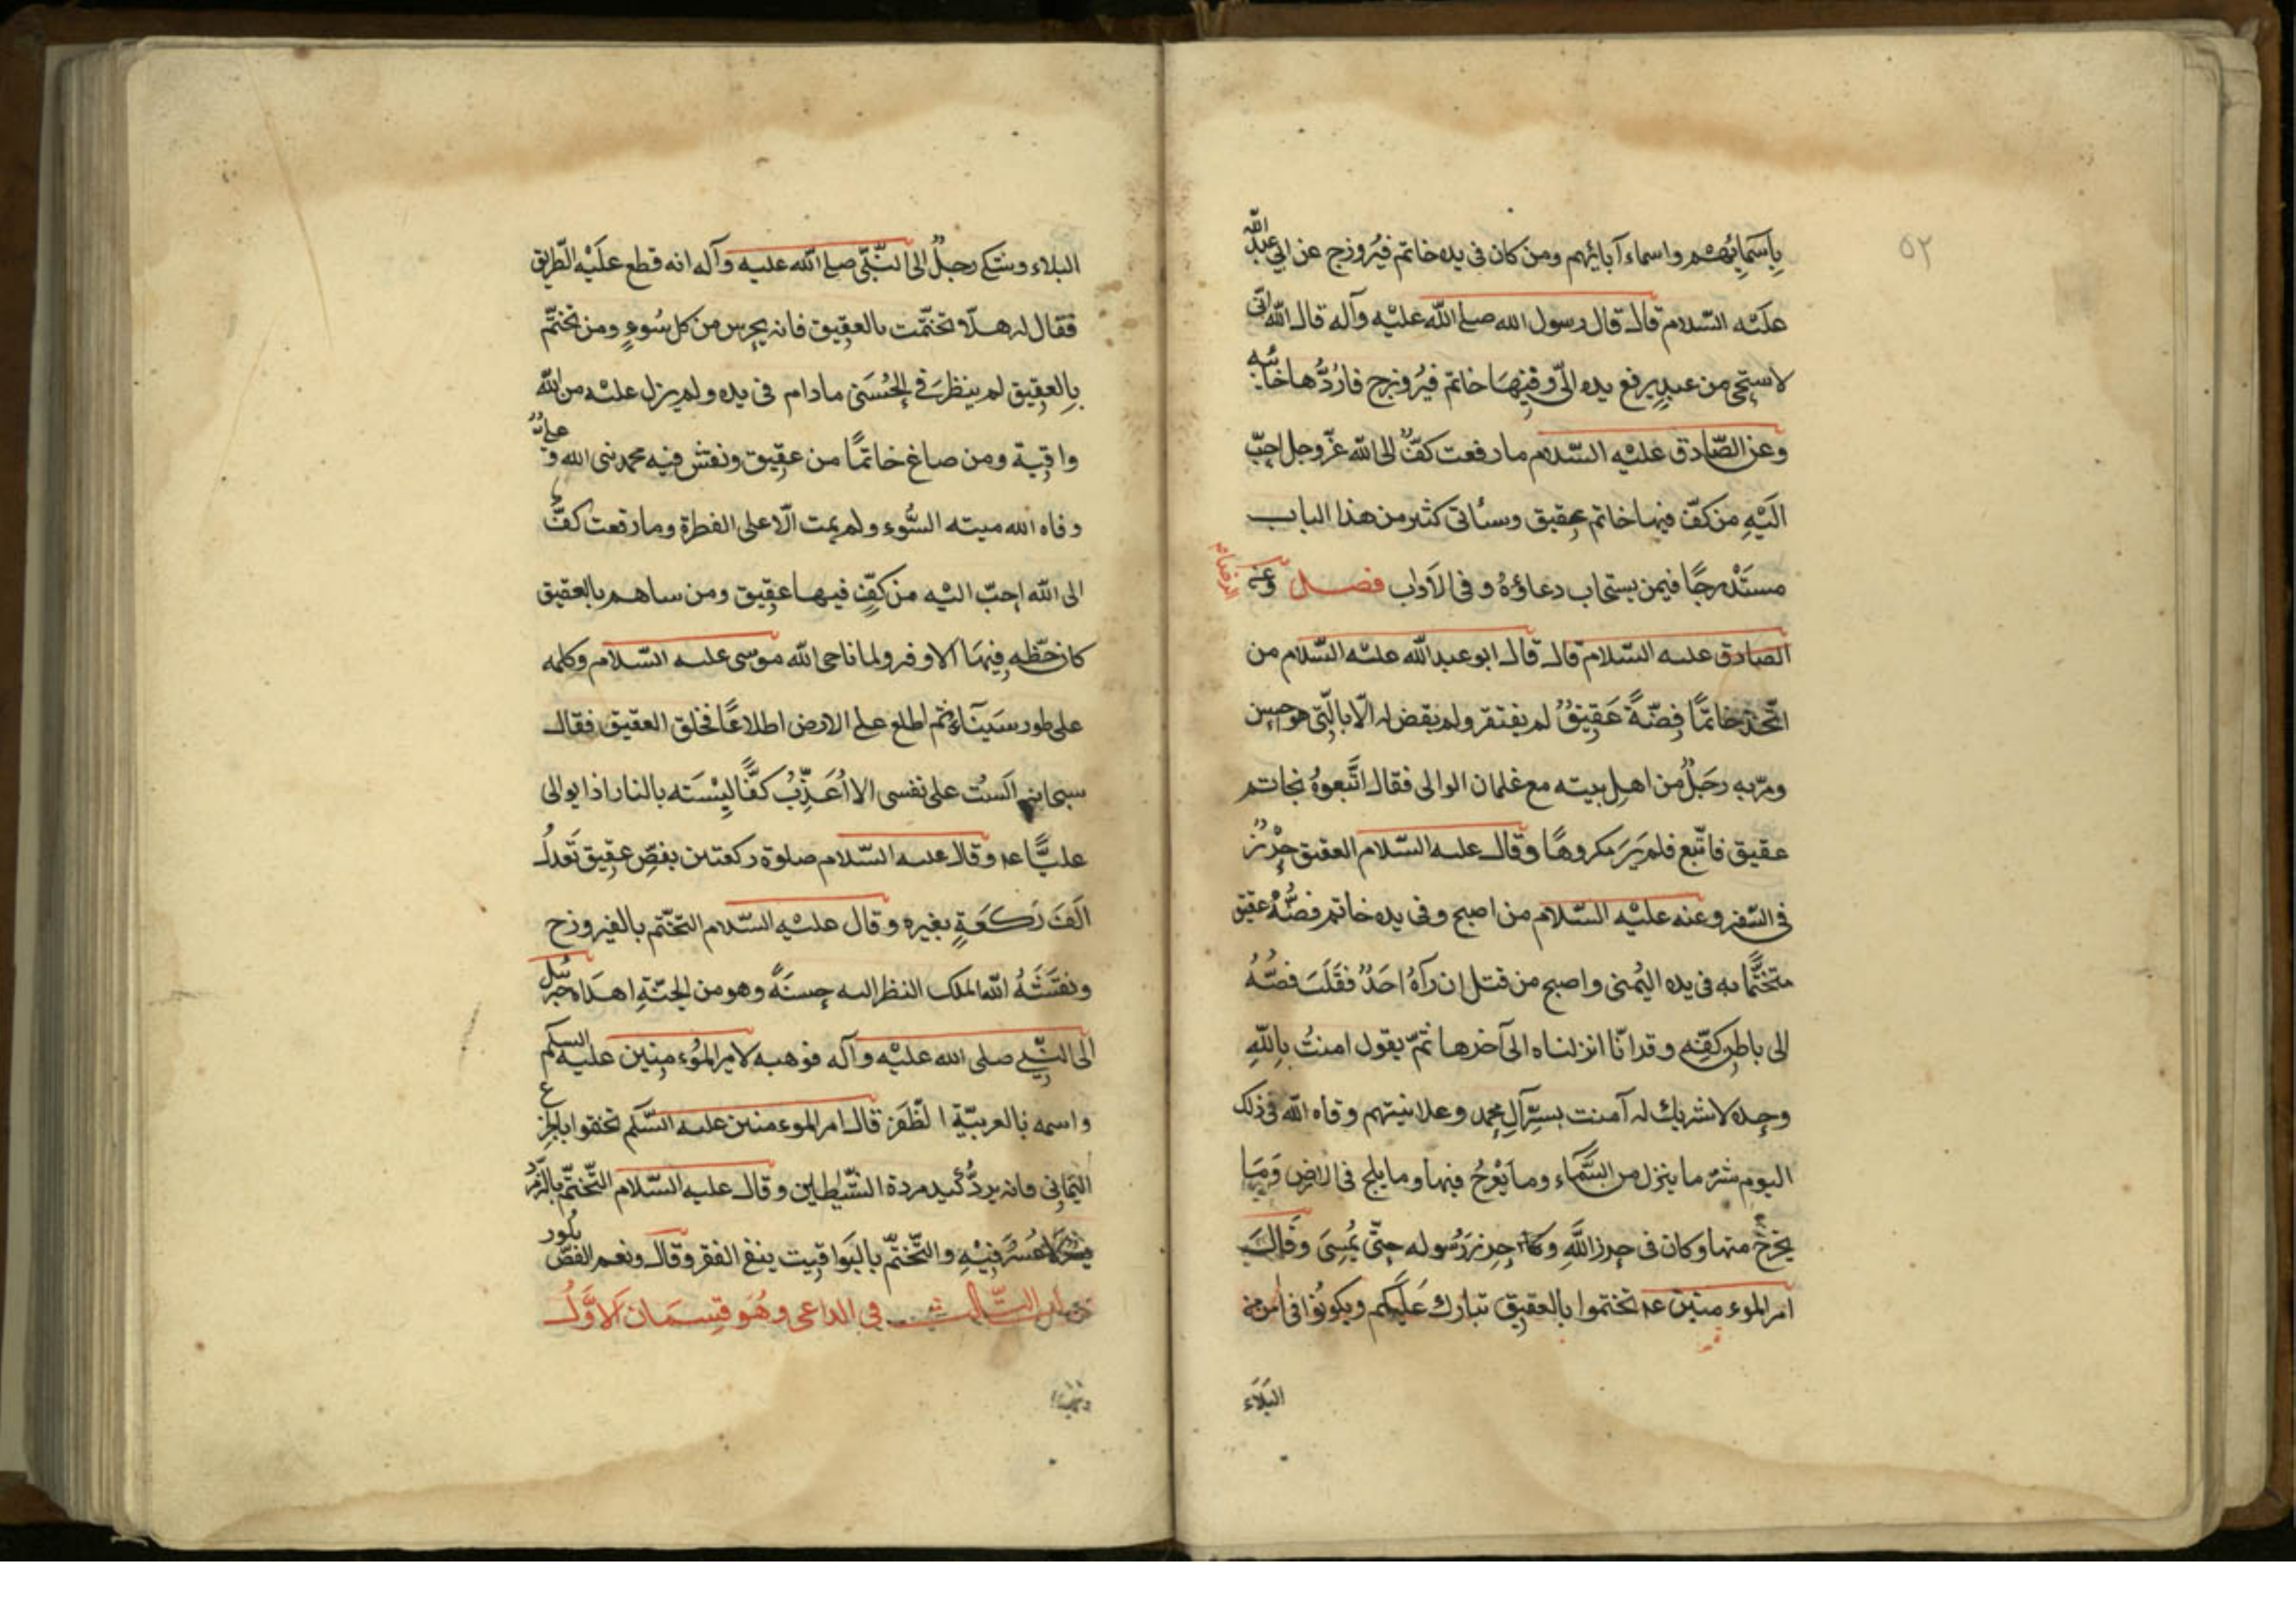 ٥٢
بِاَسمَائِهِم واسماء آبائهم ومن كان في يده خاتم فيروزج عن ابي عبد الله
عليه السّلام قال قال رسول الله صلى الله عليه وآله قال الله انّى
لاستحى من عبدٍ يرفع يده الىّ وفيها خاتم فيروزج فاردُّها خائبه
وعن الصّادق عليه السّلام ما رفعت كفٌّ الى الله عزّ وجل احبّ
اليهِ من كفّ فيها خاتم عقيق وسياتى كثير من هذا الباب
مستدرجًا فيمن يستجاب دعاؤهُ وفى الآداب فصل وعن
الصادق عليه السّلام قال قال ابو عبد الله عليه السّلام من
اتّخذ خاتمًا فصّهُ عقيقٌ لم يفتقر ولم يقض له الّا بالّتى هو احسن
ومرّ به رجلٌ من اهل بيته مع غلمان الوالى فقال اتّبعوهُ بخاتم
عقيق فاتّبع فلم ير مكروهًا وقال عليه السّلام العقيق حرزٌ
فى السّفر وعنه عليْه السّلام من اصبح وفى يده خاتم فصّهُ عقيق
متختّمًا به فى يده اليُمنى واصبح من قبل ان رآهُ احدٌ فقلب فصّهُ
الى باطن كفّهِ وقرا انّا انزلناه الى آخرها ثمّ يقول امنتُ باللهِ
وحده لا شريك له آمنت بسرّ آل محمد وعلانيتهم وقاه الله فى ذلك
اليوم شرّ ما ينزل من السَّمَاء وما يَعْرُجُ فيها وما يلج فى الارض وَمَا
يخرجُ منها وكان فى حرز اللهِ وحرز رَسُوله حتّى يُمسى وقال
امير الموءمنين عم تختموا بالعقيق تبارك عليكم ويكونوا فى امن من
البَلَاء
البلاء وشكى رجلٌ الى النّبّى صلى الله عليه وآله انه قطع عليْه الطّريق
فقال له هلّا تختّمت بالعقيق فانه يحرس من كل سُوءٍ ومن تختّم
بالعقيق لم ينظر فى الحُسنى مادام فى يده ولم يزل عليْه من الله
واقية ومن صاغ خاتمًا من عقيق ونقش فيه محمد نبى الله وعلى
وقاه الله ميته السُّوء ولم يمت الّا على الفطرة وما رفعت كفٌّ
الى الله احبّ اليْه من كفٍّ فيها عقيق ومن ساهم بالعقيق
كان حظّه فيها الاوفر ولما ناجى الله موسى عليه السّلام وكلمه
على طور سَيناءَ ثم اطلع على الارض اطلاعًا فخلق العقيق فقال
سبحانه آليتُ على نفسى الا اُعَذّبُ كفًّا لبسته بالنار اذا يوالى
عليًّا عم وقال عليه السّلام صلوة ركعتين بفصّ عقيق تعدلُ
الف ركعةٍ بغيره وقال عليْه السّلام التختّم بالفيروزج
ونقشهُ الله الملك النظر اليه حسنةٌ وهو من الجنّةِ اهداه جبرئيل
الى النّبى صلى الله عليْه وآله فوهبه لامير الموءمنين عليه السلم
واسمه بالعربيّة الظّفر قال امير الموءمنين عليه السّلم تختموا بالجزع
اليمانى فانه يردُّ كيد مردة الشّيطين وقال عليه السّلام التّختّم بالزّمرد
يسرٌ لا عسر فيْهِ والتّختّم باليواقيت ينفى الفقر وقال ونعم الفصّ بلور
الثّالث فى الداعى وهُو قِسمَان الاوّلُ